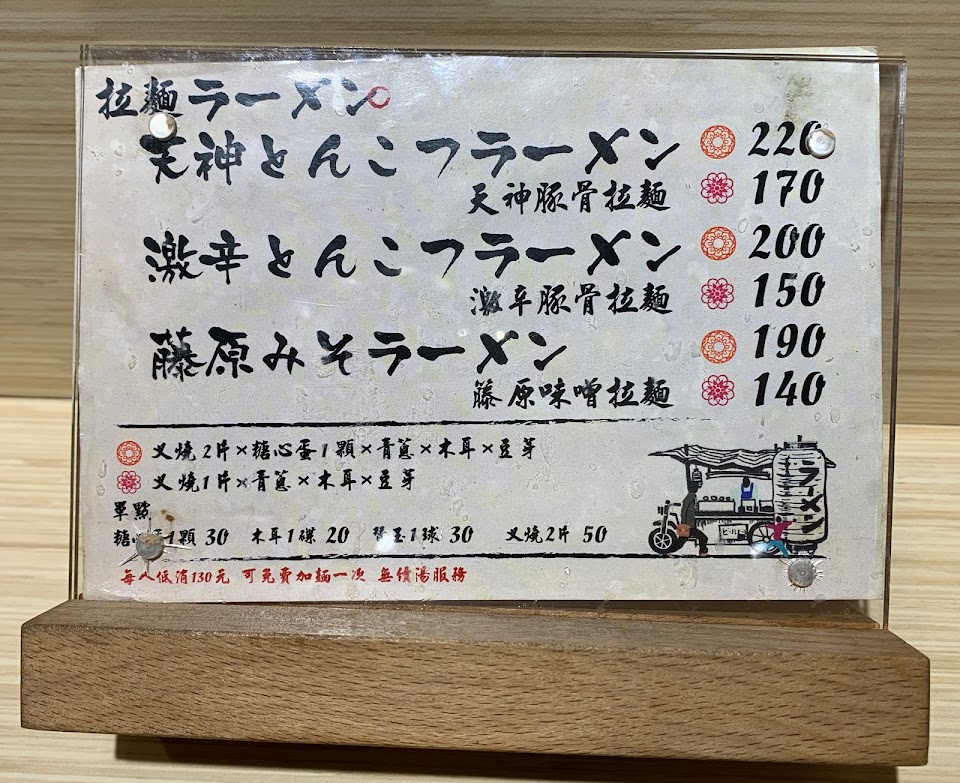 拉麵ラーメン
天神とんこつラーメン 220
天神豚骨拉麵 170
激辛とんこつラーメン 200
激辛豚骨拉麵 150
藤原みそラーメン 190
籐原味噌拉麵 140
叉燒2片×糖心蛋1顆×青蔥×木耳×豆芽
叉燒1片×青蔥×木耳×豆芽
單點
糖心蛋1顆 30 木耳1碟 20 替玉1球 30 叉燒2片 50
每人低消130元 可免費加麵一次 無續湯服務
ラーメン
ビール